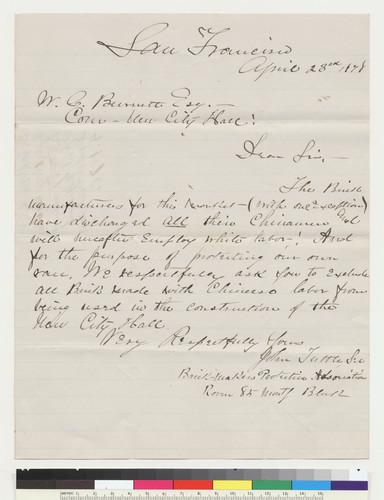 San Francisco
April 23rd 1878
W. C. Burnett Esq. —
Com — New City Hall:
Dear Sir, —
The Brick
manufacturers for this market — (with one exception)
have discharged all their Chinamen and
will hereafter Employ white labor. And
for the purpose of protecting our own
race, We respectfully ask you to exclude
all Brick made with Chinese labor from
being used in the construction of the
New City Hall
Very Respectfully Yours
John Tuttle Sec
Brick-makers Protective Association
Room 85 Montg Block